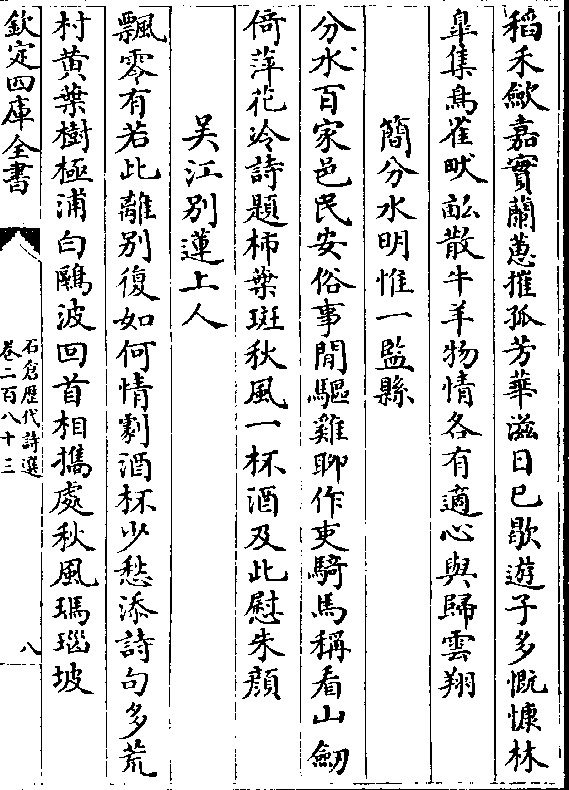 稻禾歛嘉實蘭蕙摧孤芳華滋日已歇遊子多慨慷林
臯集鳥雀畎畝散牛羊物情各有適心與歸雲翔
簡分水明惟一監縣
分水百家邑民安俗事閒驅雞聊作吏騎馬稱看山劒
倚萍花冷詩題柿葉斑秋風一杯酒及此慰朱顔
吴江别蓮上人
飄零有若此離别復如何情劇酒杯少愁添詩句多荒
村黄葉樹極浦白鷗波回首相攜處秋風瑪瑙坡
欽定四庫全書
石倉歴代詩選
卷二百八十三
八